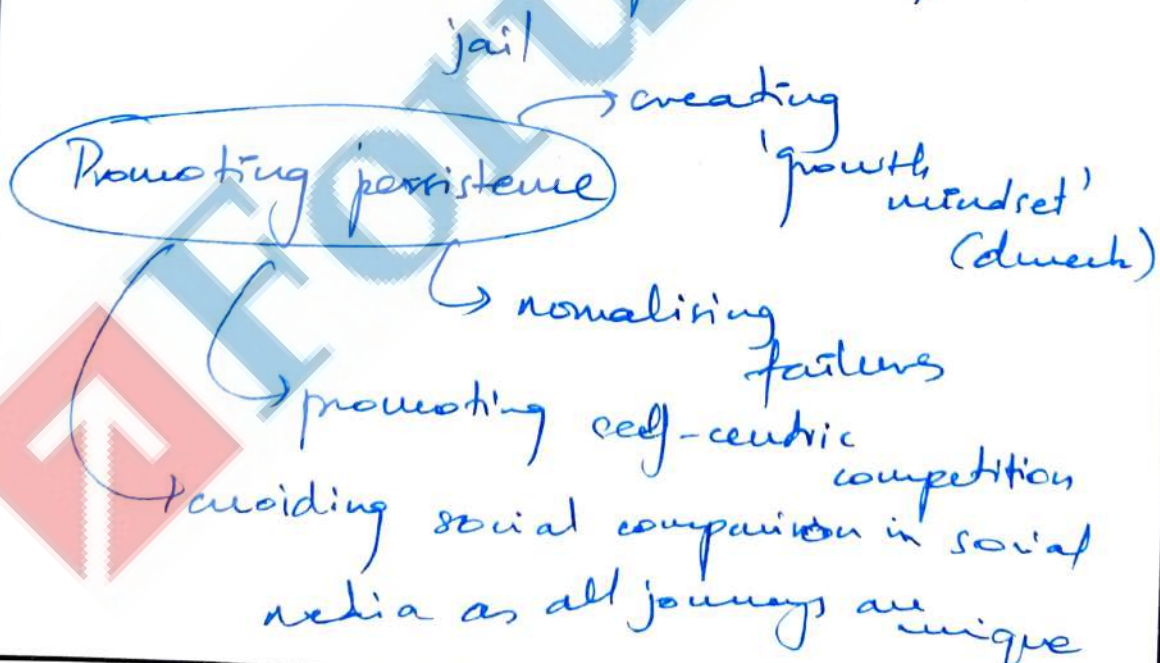 jail
Promoting persistence
creating
'growth
mindset'
(dweck)
normalising
failures
promoting self-centric
competition
avoiding social comparison in social
media as all journeys are
unique